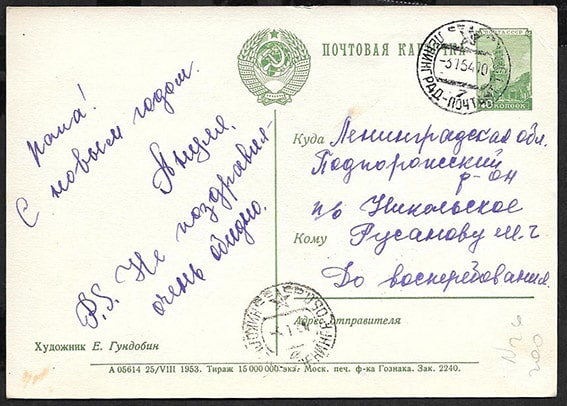 ПОЧТОВАЯ КАРТОЧКА
ПОЧТА СССР
КОПЕЕК
ЛЕНИНГРАД-ПОЧТАМТ
-3154-10
7
Папа!
С новым годом.
P.S. Не поздравил-
очень обидно.
Куда Ленинградская обл.
Подпорожский
р-он
п/о Никольское
Кому Русанову М.Г
До востребования.
Адрес отправителя
Художник Е. Гундобин
А 05614 25/VIII 1953. Тираж 15 000 000 экз. Моск. печ. ф-ка Гознака. Зак. 2240.